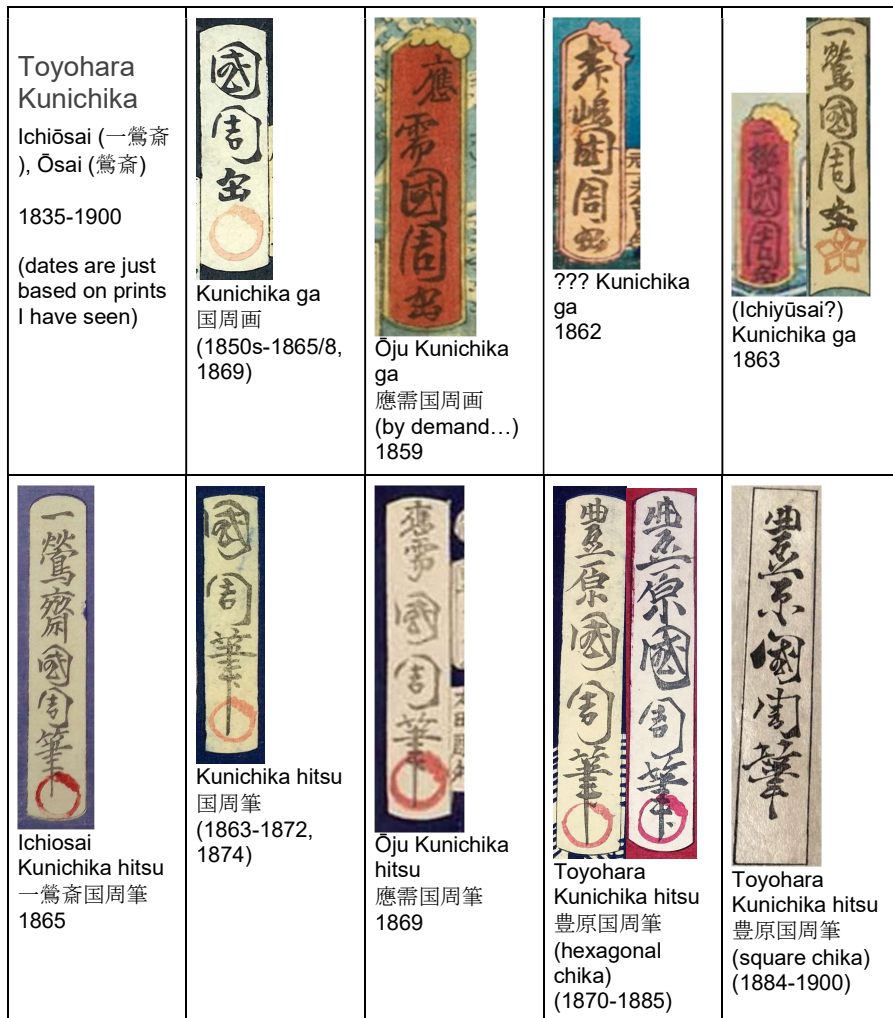 Toyohara
Kunichika
Ichiōsai (一鶯斎
), Ōsai (鶯斎)
1835-1900
(dates are just
based on prints
I have seen)
國周画
Kunichika ga
国周画
(1850s-1865/8,
1869)
應需國周画
Ōju Kunichika
ga
應需国周画
(by demand…)
1859
國周画
??? Kunichika
ga
1862
一鶯國周画
一鶯國周画
(Ichiyūsai?)
Kunichika ga
1863
一鶯齋國周筆
Ichiosai
Kunichika hitsu
一鶯斎国周筆
1865
國周筆
Kunichika hitsu
国周筆
(1863-1872,
1874)
應需國周筆
Ōju Kunichika
hitsu
應需国周筆
1869
豊原國周筆
豊原國周筆
Toyohara
Kunichika hitsu
豊原国周筆
(hexagonal
chika)
(1870-1885)
豊原國周筆
Toyohara
Kunichika hitsu
豊原国周筆
(square chika)
(1884-1900)